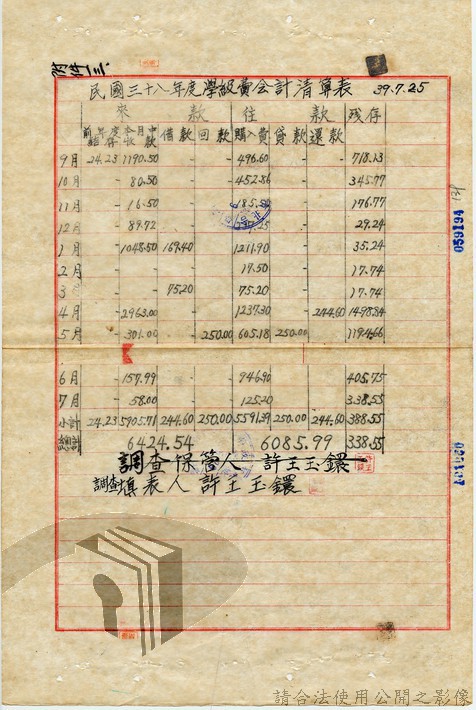 附件三
民國三十八年度學級費会計清算表 39.7.25
來款 往款 残存
前年度結存 本月中收款 借款 回款 購入費 貸款 還款
9月 24.23 1190.50 - - 496.60 - - 718.13
10月 - 80.50 - - 452.86 - - 345.77
11月 - 16.50 - - 185.50 - - 176.77
12月 - 89.72 - - - - 29.24
1月 - 1048.50 169.40 - 1211.90 - - 35.24
2月 - - - - 17.50 - - 17.74
3 - - 75.20 - 75.20 - - 17.74
4月 - 2963.00 - - 1237.30 - 244.60 1498.84
5月 - 301.00 - 250.00 605.18 250.00 - 1194.66
6月 - 157.99 - - 946.90 - - 405.75
7月 - 58.00 - - 125.20 - - 338.55
小計 24.23 5905.71 244.60 250.00 5591.39 250.00 244.60 388.55
總計 6424.54 6085.99 338.55
調查保管人 許王玉鐶
調查填表人 許王玉鐶
059194
請合法使用公開之影像